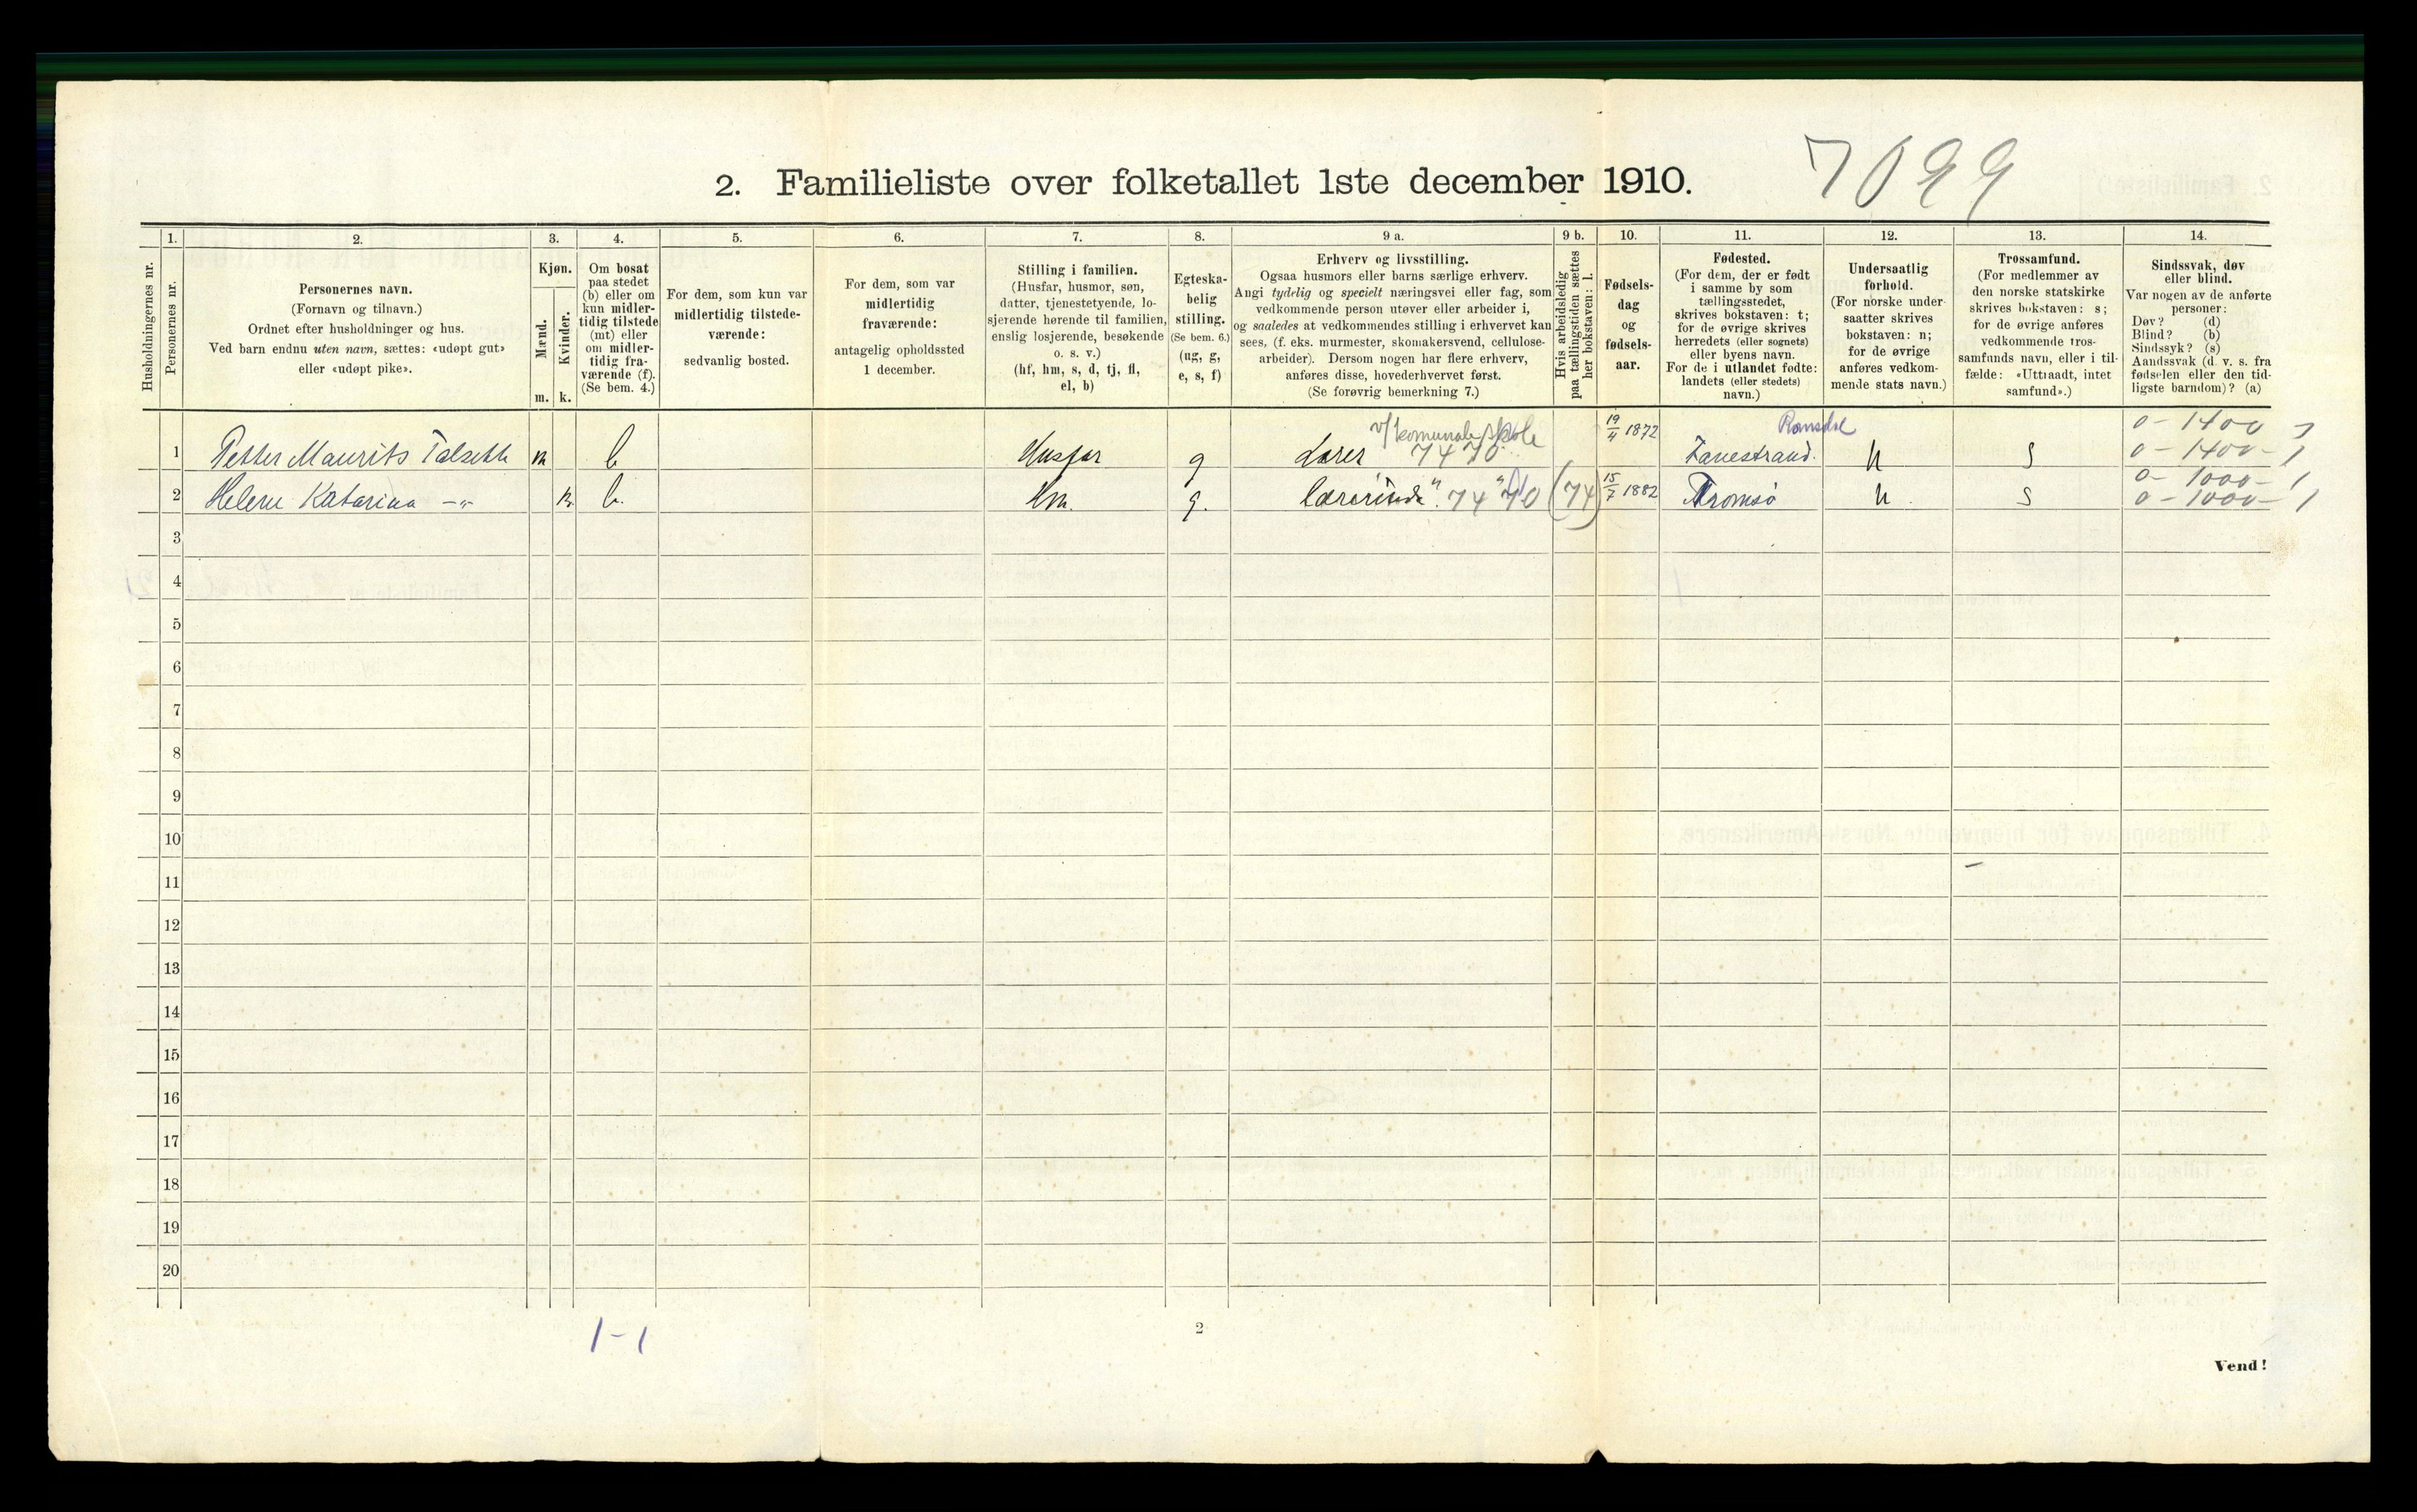 2. Familieliste over folketallet 1ste december 1910.
7099
Husholdningernes nr.
1.
Personernes nr.
2.
Personernes navn.
(Fornavn og tilnavn.)
Ordnet efter husholdninger og hus.
Ved barn endnu uten navn, sættes: «udøpt gut»
eller «udøpt pike».
3.
Kjøn.
Mænd.
Kvinder.
m. k.
4.
Om bosat
paa stedet
(b) eller om
kun midler-
tidig tilstede
(mt) eller
om midler-
tidig fra-
værende (f).
(Se bem. 4.)
5.
For dem, som kun var
midlertidig tilstede-
værende:
sedvanlig bosted.
6.
For dem, som var
midlertidig
fraværende:
antagelig opholdssted
1 december.
7.
Stilling i familien.
(Husfar, husmor, søn,
datter, tjenestetyende, lo-
sjerende hørende til familien,
enslig losjerende, besøkende
o. s. v.)
(hf, hm, s, d, tj, fl,
el, b)
8.
Egteska-
belig
stilling.
(Se bem. 6.)
(ug, g,
e, s, f)
9 a.
Erhverv og livsstilling.
Ogsaa husmors eller barns særlige erhverv.
Angi tydelig og specielt næringsvei eller fag, som
vedkommende person utøver eller arbeider i,
og saaledes at vedkommendes stilling i erhvervet kan
sees, (f. eks. murmester, skomakersvend, cellulose-
arbeider). Dersom nogen har flere erhverv,
anføres disse, hovederhvervet først.
(Se forøvrig bemerkning 7.)
9 b.
Hvis arbeidsledig
paa tællingstiden sættes
her bokstaven: l.
10.
Fødsels-
dag
og
fødsels-
aar.
11.
Fødested.
(For dem, der er født
i samme by som
tællingsstedet,
skrives bokstaven: t;
for de øvrige skrives
herredets (eller sognets)
eller byens navn.
For de i utlandet fødte:
landets (eller stedets)
navn.)
12.
Undersaatlig
forhold.
(For norske under-
saatter skrives
bokstaven: n;
for de øvrige
anføres vedkom-
mende stats navn.)
13.
Trossamfund.
(For medlemmer av
den norske statskirke
skrives bokstaven: s;
for de øvrige anføres
vedkommende tros-
samfunds navn, eller i til-
fælde: «Uttraadt, intet
samfund».)
14.
Sindssvak, døv
eller blind.
Var nogen av de anførte
personer:
Døv? (d)
Blind? (b)
Sindssyk? (s)
Aandssvak (d. v. s. fra
fødselen eller den tid-
ligste barndom)? (a)
v/ komunale skole 19/4 1872 Romsdal 0 - 1400
1 Petter Maurits Talseth m b Husfar g Lærer 7470 Fanestrand. n s 0 - 1400 - 1
0 - 1000 - 1
2 Helene Katarina -"- k. b. Hm. g. Lærerinde " 74 " 70 (74) 15/7 1882 Tromsø n. s 0 - 1000 - 1
3
4
5
6
7
8
9
10
11
12
13
14
15
16
17
18
19
20
1-1
2
Vend!